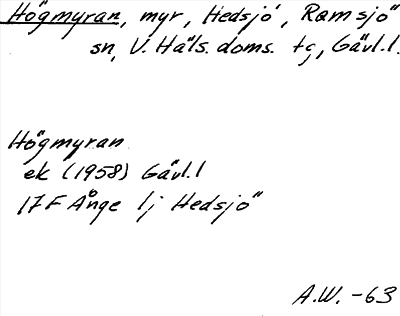 Högmyran, myr, Hedsjö, Ramsjö
sn, V. Häls. doms. tg, Gävl.l.
Högmyran
ek (1958) Gävl.l
17F Ånge 1j Hedsjö
A.W. -63